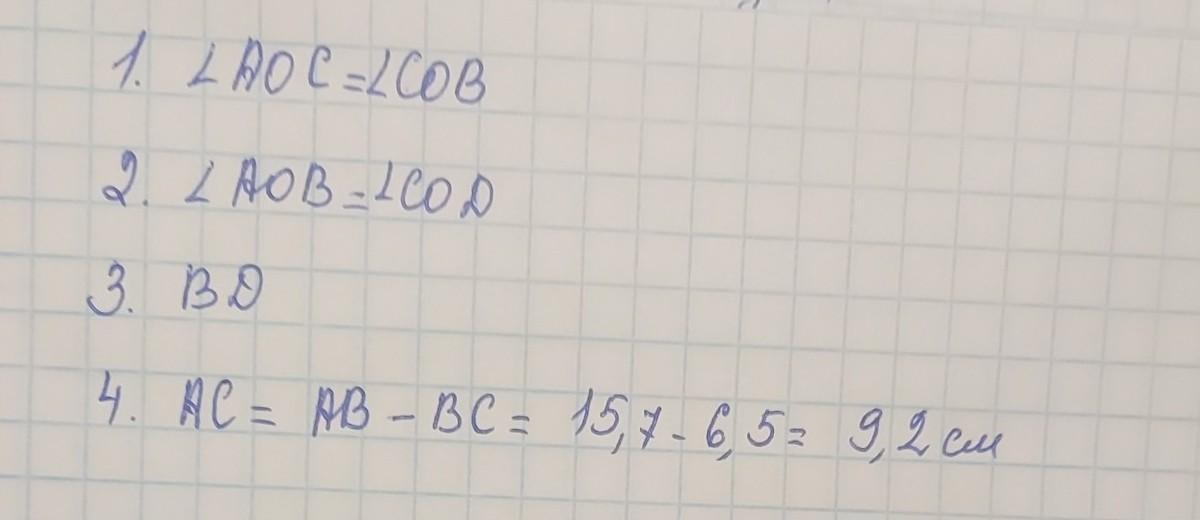 1. ∠AOC=∠COB
2. ∠AOB=∠COD
3. BD
4. AC= AB-BC= 15,7-6,5= 9,2 см